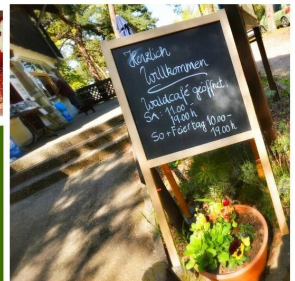 Herzlich
Willkommen
Waldcafé geöffnet.
SA: 11.00-
19.00h
So+Feiertag 10.00-
19.00h